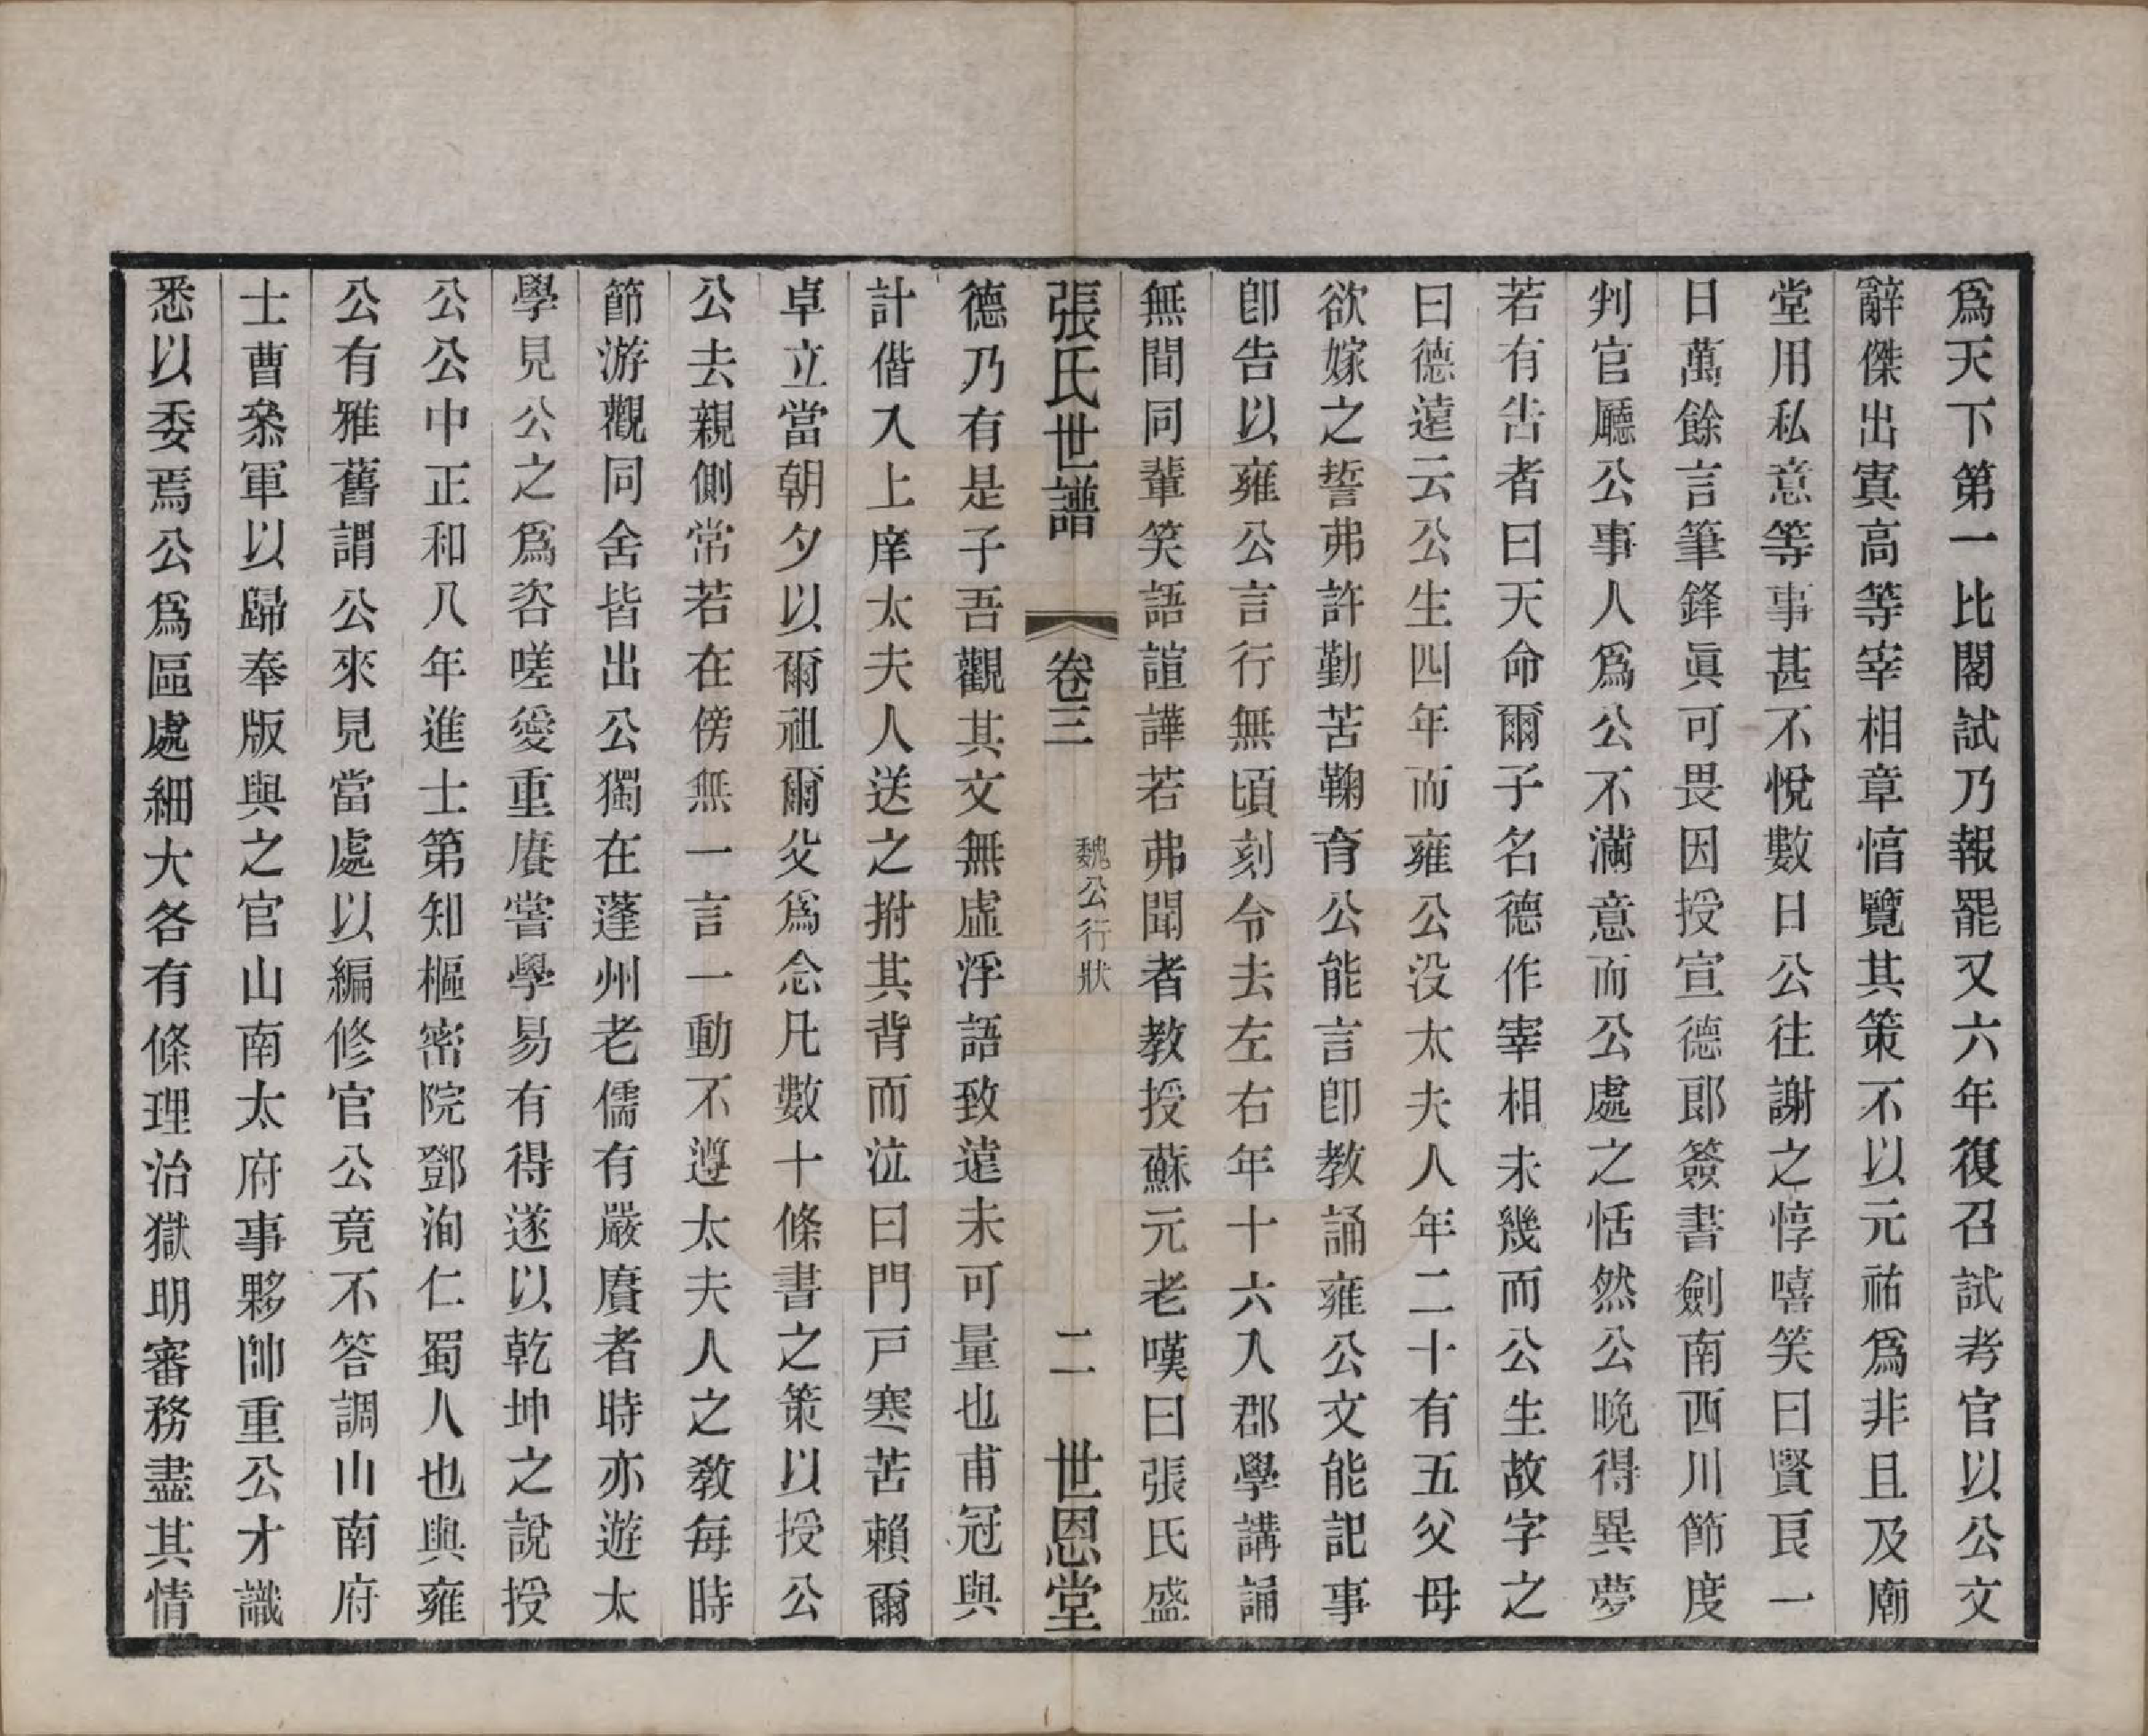 爲天下第一比閣試乃報罷又六年復召試考官以公文
辭傑出寘高等宰相章惇覽其策不以元祐爲非且及廟
堂用私意等事甚不悅數日公往謝之惇嘻笑曰賢良一
日萬餘言筆鋒眞可畏因授宣德郎簽書劍南西川節度
判官廳公事人爲公不滿意而公處之恬然公晚得異夢
若有告者曰天命爾子名德作宰相未幾而公生故字之
曰德遠云公生四年而雍公没太夫人年二十有五父母
欲嫁之誓弗許勤苦鞠育公能言卽教誦雍公文能記事
卽告以雍公言行無頃刻令去左右年十六入郡學講誦
無間同輩笑語諠譁若弗聞者教授蘇元老嘆曰張氏盛
張氏世譜 卷三 魏公行狀 二 世恩堂
德乃有是子吾觀其文無虛浮語致遠未可量也甫冠與
計偕入上庠太夫人送之拊其背而泣曰門戸寒苦賴爾
卓立當朝夕以爾祖爾父爲念凡數十條書之策以授公
公去親側常若在傍無一言一動不遵太夫人之教每時
節游觀同舍皆出公獨在蓬州老儒有嚴賡者時亦遊太
學見公之爲咨嗟愛重賡嘗學易有得遂以乾坤之說授
公公中正和八年進士第知樞密院鄧洵仁蜀人也與雍
公有雅舊謂公來見當處以編修官公竟不答調山南府
士曹叅軍以歸奉版輿之官山南太府事夥帥重公才識
悉以委焉公爲區處細大各有條理治獄明審務盡其情